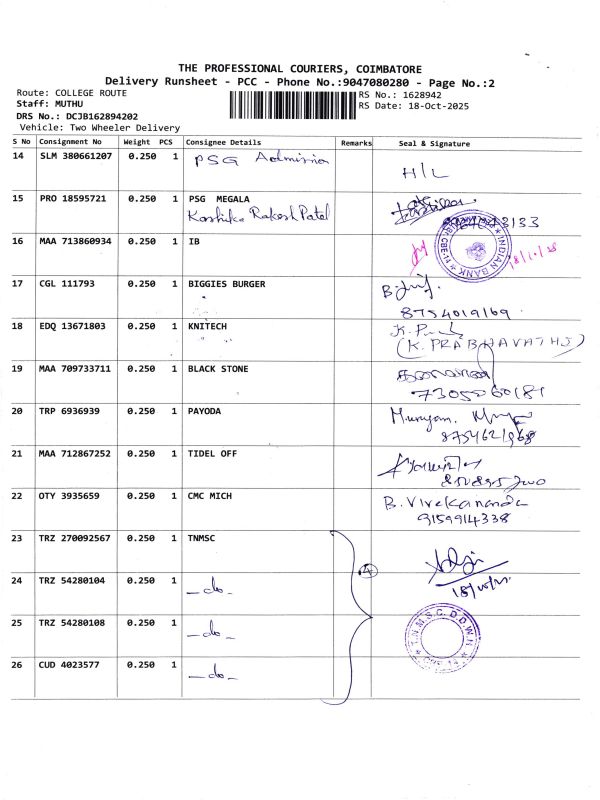 THE PROFESSIONAL COURIERS, COIMBATORE
Delivery Runsheet - PCC - Phone No.:9047080280 - Page No.:2
Route: COLLEGE ROUTE
RS No.: 1628942
Staff: MUTHU
RS Date: 18-Oct-2025
DRS No.: DCJB162894202
Vehicle: Two Wheeler Delivery
S No Consignment No Weight PCS Consignee Details Remarks Seal & Signature
14 SLM 380661207 0.250 1 PSG Admission
H/L
15 PRO 18595721 0.250 1 PSG MEGALA
Karshika Rakesh Patel
16 MAA 713860934 0.250 1 IB
INDIAN BANK
18/10/25
17 CGL 111793 0.250 1 BIGGIES BURGER
8754019169
18 EDQ 13671803 0.250 1 KNITECH
(K. PRABHAVATHJ)
19 MAA 709733711 0.250 1 BLACK STONE
7305060181
20 TRP 6936939 0.250 1 PAYODA
Murugan.
8754621968
21 MAA 712867252 0.250 1 TIDEL OFF
22 OTY 3935659 0.250 1 CMC MICH
B. Vivekananda
9159914338
23 TRZ 270092567 0.250 1 TNMSC
4
24 TRZ 54280104 0.250 1 -do-
25 TRZ 54280108 0.250 1 -do-
T.N.M.S.C. D.D.W.H
26 CUD 4023577 0.250 1 -do-